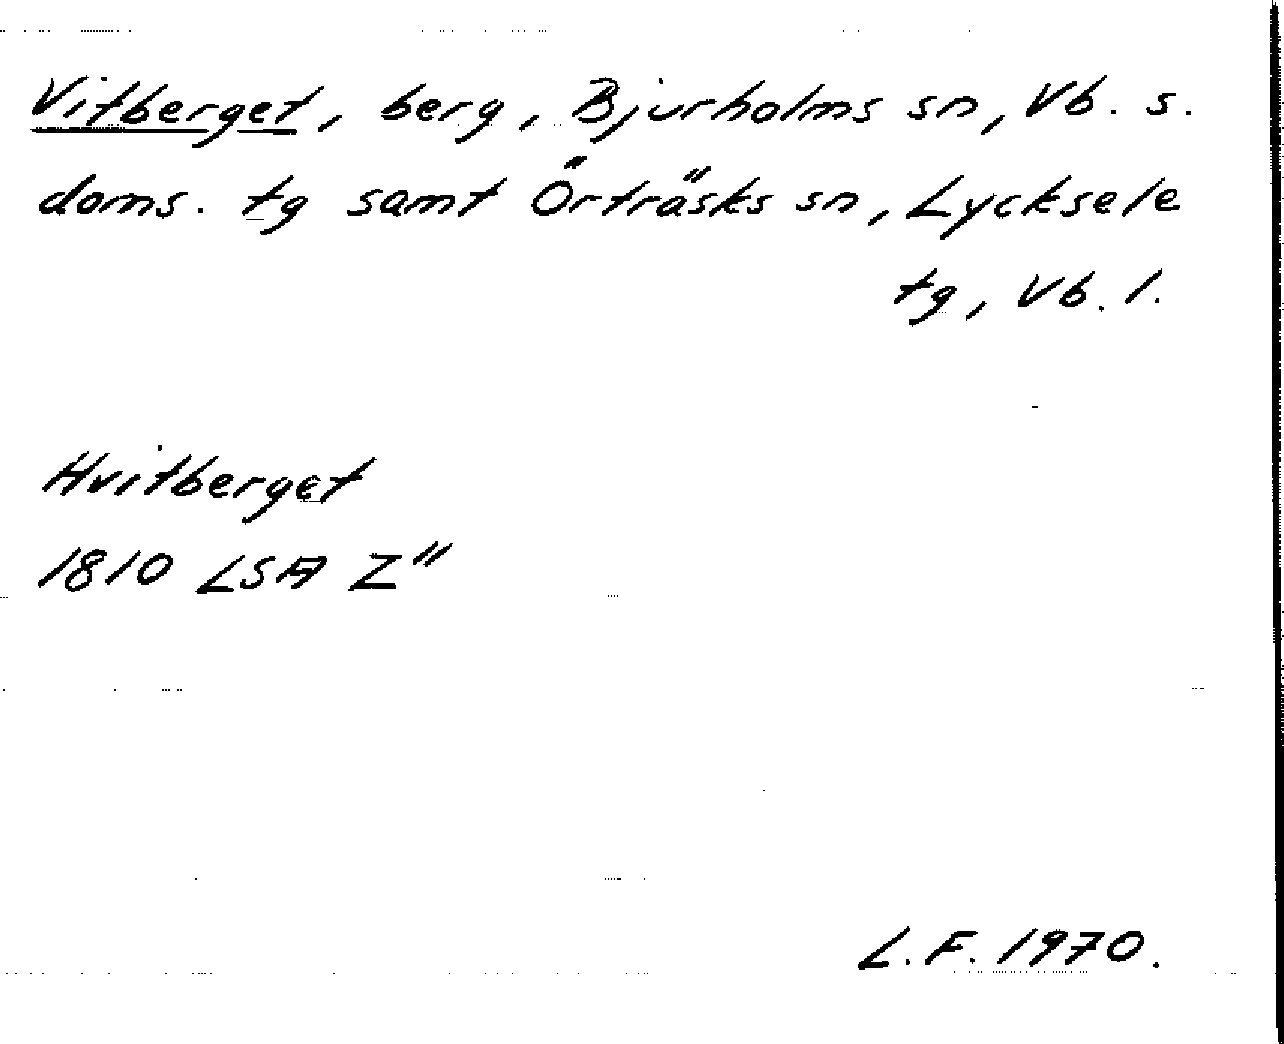 Vitberget, berg, Bjurholms sn, Vb. s.
doms. tg samt Örträsks sn, Lycksele
tg, Vb. l.
Hvitberget
1810 LSA Z"
L.F. 1970.